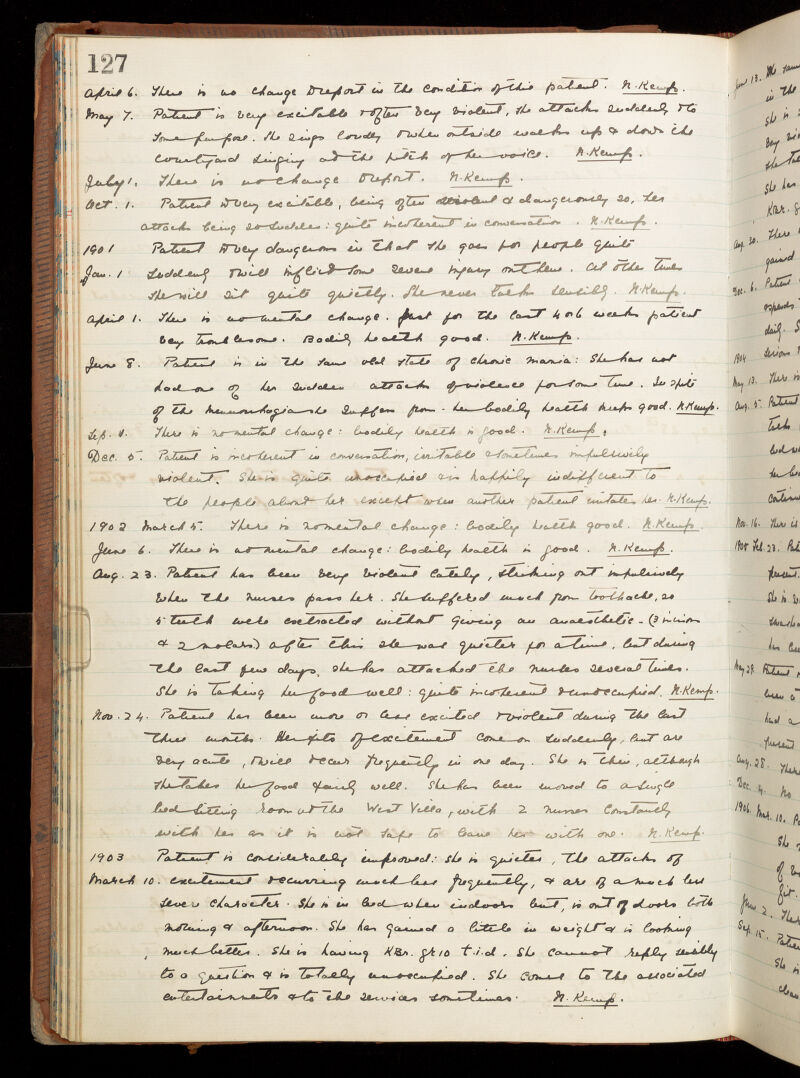 127
April 6. There is no change to report in the condition of this patient. N. Kemp.
May 7. Patient is very excitable & often very violent, she attacks suddenly & to
some purpose. She sings loudly & when outside walks up & down the
courtyard singing at the pitch of her voice. N. Kemp.
July 1. There is no change to report. N. Kemp.
Oct. 1. Patient is very excitable, being often violent & dangerously so, her
attacks being so sudden: quite incoherent in conversation. N. Kemp.
1901 Patient is very dangerous in that she goes for people quite
Jan. 1 suddenly & will inflict some severe injury on them. At other times
she will sit quite quietly. She never talks sensibly. N. Kemp.
April 1. There is no mental change. Just for the last 4 or 6 weeks patient
very troublesome. Bodily health good. N. Kemp.
June 8. Patient is in the same old state of chronic mania: she has not
had one of her sudden attacks of violence for some time. In spite
of the menorrhagia she suffers from her bodily health keeps good. N. Kemp.
Sep. 1. There is no mental change: bodily health is good. N. Kemp.
Dec. 5. Patient is incoherent in conversation, irritable & sometimes impulsively
violent. She is quite unoccupied & is happily indifferent to
the people about her except when another patient imitates her. N. Kemp.
1902 March 5. There is no mental change: bodily health good. N. Kemp.
June 6. There is no mental change: bodily health is good. N. Kemp.
Aug. 23. Patient has been very violent lately, striking out impulsively
when the nurses pass her. She suffered much from toothache, so
5 teeth were extracted without giving an anaesthetic - (3 incisors
& 2 molars) after this she was quieter for a time, but during
the last few days, she has attacked the nurses several times.
She is taking her food well: quite incoherent & unoccupied. N. Kemp.
Nov. 24. Patient has been more or less excited & violent during the last
three months. Her fits of excitement come on suddenly, but are
very acute, & will recur frequently in one day. She is thin, although
she takes her food fairly well. She has been moved to a single
bed sitting room at the West Villa, with 2 nurses constantly
with her as it is not safe to leave her with one. N. Kemp.
1903 Patient is considerably improved: she is quieter, the attacks of
March 10. excitement recurring much less frequently, & are of a much less
severe character. She is in bed when indoors but, is out of doors both
morning & afternoon. She has gained a little in weight & is looking
much better. She is having KBr. gr 10 t.i.d. She cannot reply sensibly
to a question & is totally unoccupied. She comes to the associated
entertainments & to the services sometimes. N. Kemp.
June 13. The same
in the
she is
very
she
She has
KBr.
Aug. 20. There
gained
Dec. 6. Patient
daily. S
1904
May 13. There is
Aug. 5. Patient
talks
Nov. 16. There is
1905 Feb. 23.
present.
She is
has
May 29. Patient
been
had a
present
Aug. 28. There
Dec. 4. No
1906 Mar. 10.
She
of
fit.
June 2. There
Sep. 15. Patient
She is